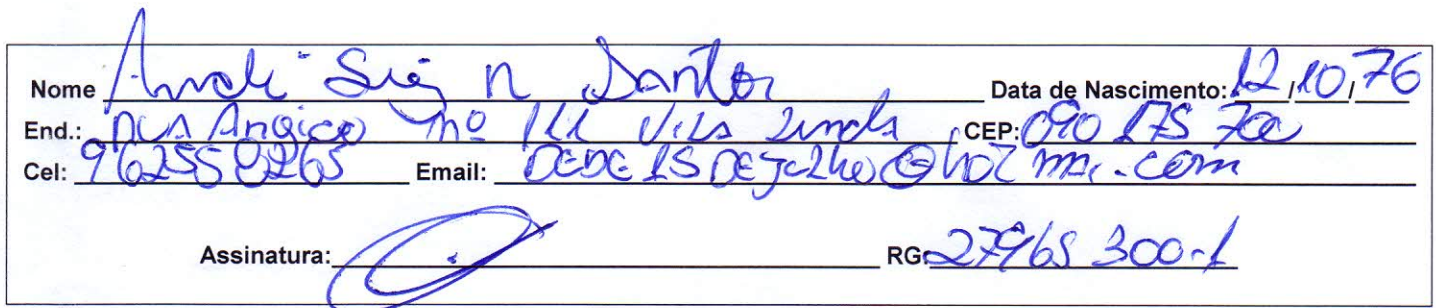 Nome André Siq N Santos Data de Nascimento: 12/10/76
End.: RUA Angico nº 111 Vila Linda CEP: 090 175 700
Cel: 962550265 Email: DEDE15DEJulho@hotmai.com
Assinatura: RG: 27965 300-1